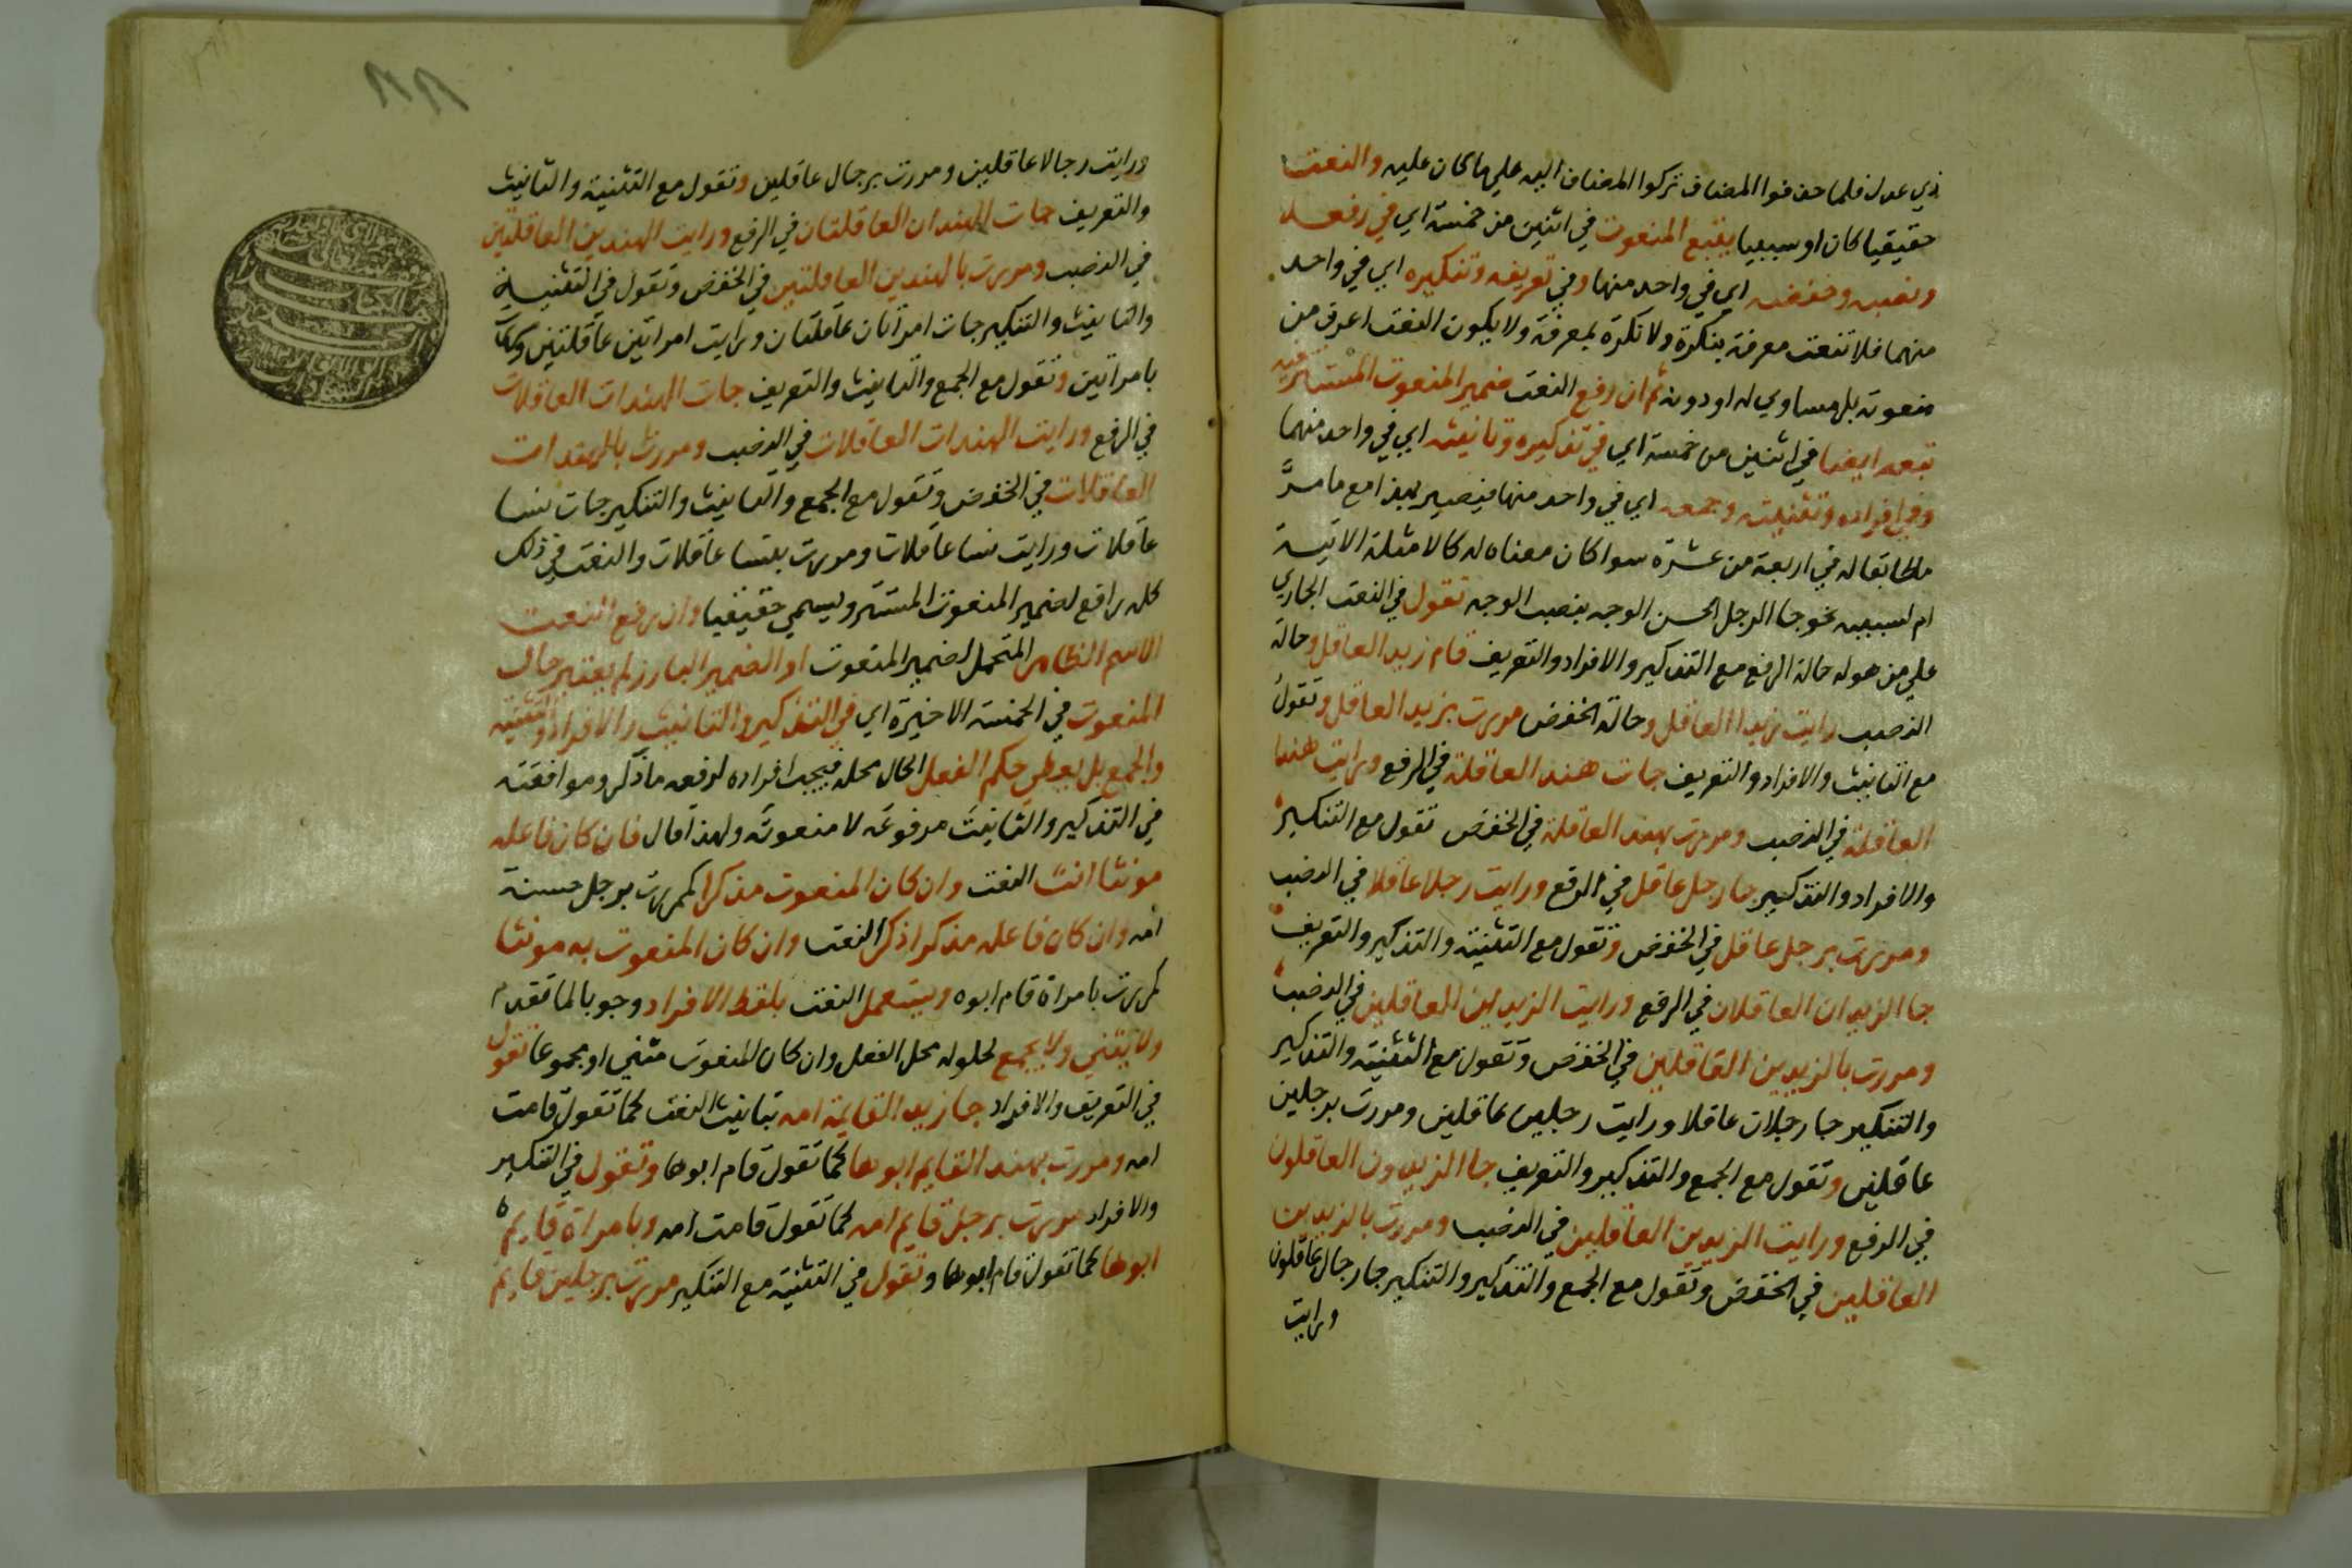 ذي عدل فلما حذفوا المضاف تركوا المضاف اليه علي ما كان عليه والنعت
حقيقيا كان او سببيا يتبع المنعوت في اثنين من خمسة اي في رفعه
ونصبه وخفضه اي في واحد منها وفي تعريفه وتنكيره اي في واحد
منهما فلا تنعت معرفة بنكرة ولا نكرة بمعرفة ولا يكون النعت اعرف من
منعوته بل مساوي له او دونه ثم ان رفع النعت ضمير المنعوت المستتر فيه
تبعه ايضا في اثنين من خمسة اي في تذكيره وتانيثه اي في واحد منهما
وفي افراده وتثنيته وجمعه اي في واحد منها فيصير بهذا مع ما مرَّ
مطابقا له في اربعة من عشرة سوا كان معناه له كالامثلة الاتية
ام لسببيه نحو جا الرجل الحسن الوجه بنصب الوجه تقول في النعت الجاري
علي من هو له حالة الرفع مع التذكير والافراد والتعريف قام زيد العاقل وحالة
النصب رايت زيدا العاقل وحالة الخفض مررت بزيد العاقل وتقول
مع التانيث والافراد والتعريف جات هند العاقلة في الرفع ورايت هندا
العاقلة في النصب ومررت بهند العاقلة في الخفض تقول مع التنكير
والافراد والتذكير جا رجل عاقل في الرفع ورايت رجلا عاقلا في النصب
ومررت برجل عاقل في الخفض وتقول مع التثنية والتذكير والتعريف
جا الزيدان العاقلان في الرفع ورايت الزيدين العاقلين في النصب
ومررت بالزيدين العاقلين في الخفض وتقول مع التثنية والتذكير
والتنكير جا رجلان عاقلا ورايت رجلين عاقلين ومررت برجلين
عاقلين وتقول مع الجمع والتذكير والتعريف جا الزيدون العاقلون
في الرفع ورايت الزيدين العاقلين في النصب ومررت بالزيدين
العاقلين في الخفض وتقول مع الجمع والتذكير والتنكير جا رجال عاقلون
ورايت
ورايت رجالا عاقلين ومررت برجال عاقلين وتقول مع التثنية والتانيث
والتعريف جات الهندان العاقلتان في الرفع ورايت الهندين العاقلتين
في النصب ومررت بالهندين العاقلتين في الخفض وتقول في التثنية
والتانيث والتنكير جات امراتان عاقلتان ورايت امراتين عاقلتين
بامراتين وتقول مع الجمع والتانيث والتعريف جات الهندات العاقلات
في الرفع ورايت الهندات العاقلات في النصب ومررت بالهندات
العاقلات في الخفض وتقول مع الجمع والتانيث والتنكير جات نسا
عاقلات ورايت نسا عاقلات ومررت بنسا عاقلات والنعت في ذلك
كله رافع لضمير المنعوت المستتر ويسمي حقيقيا وان رفع النعت
الاسم الظاهر المتحمل لضمير المنعوت او الضمير البارز لم يعتبر حال
المنعوت في الخمسة الاخيرة اي في التذكير والتانيث والافراد والتثنية
والجمع بل يعطي حكم الفعل الحال محله فيجب افراده لرفعه ما ذكر وموافقته
في التذكير والتانيث مرفوعه لا منعوته ولهذا قال فان كان فاعله
مونثا انث النعت وان كان المنعوت مذكرا كمررت برجل حسنة
امه وان كان فاعله مذكرا ذكر النعت وان كان المنعوت به مونثا
كمررت بامراة قام ابوه ويستعمل النعت بلفظ الافراد وجوبا لما تقدم
ولا يثني ولا يجمع لحلوله محل الفعل وان كان المنعوت مثني او مجموعا تقول
في التعريف والافراد جا زيد القايمة امه بتانيث النعت كما تقول قامت
امه ومررت بهند القايم ابوها كما تقول قام ابوها وتقول في التنكير
والافراد مررت برجل قايم امه كما تقول قامت امه وبامراة قايم
ابوها كما تقول قام ابوها وتقول في التثنية مع التنكير مررت برجلين قايم